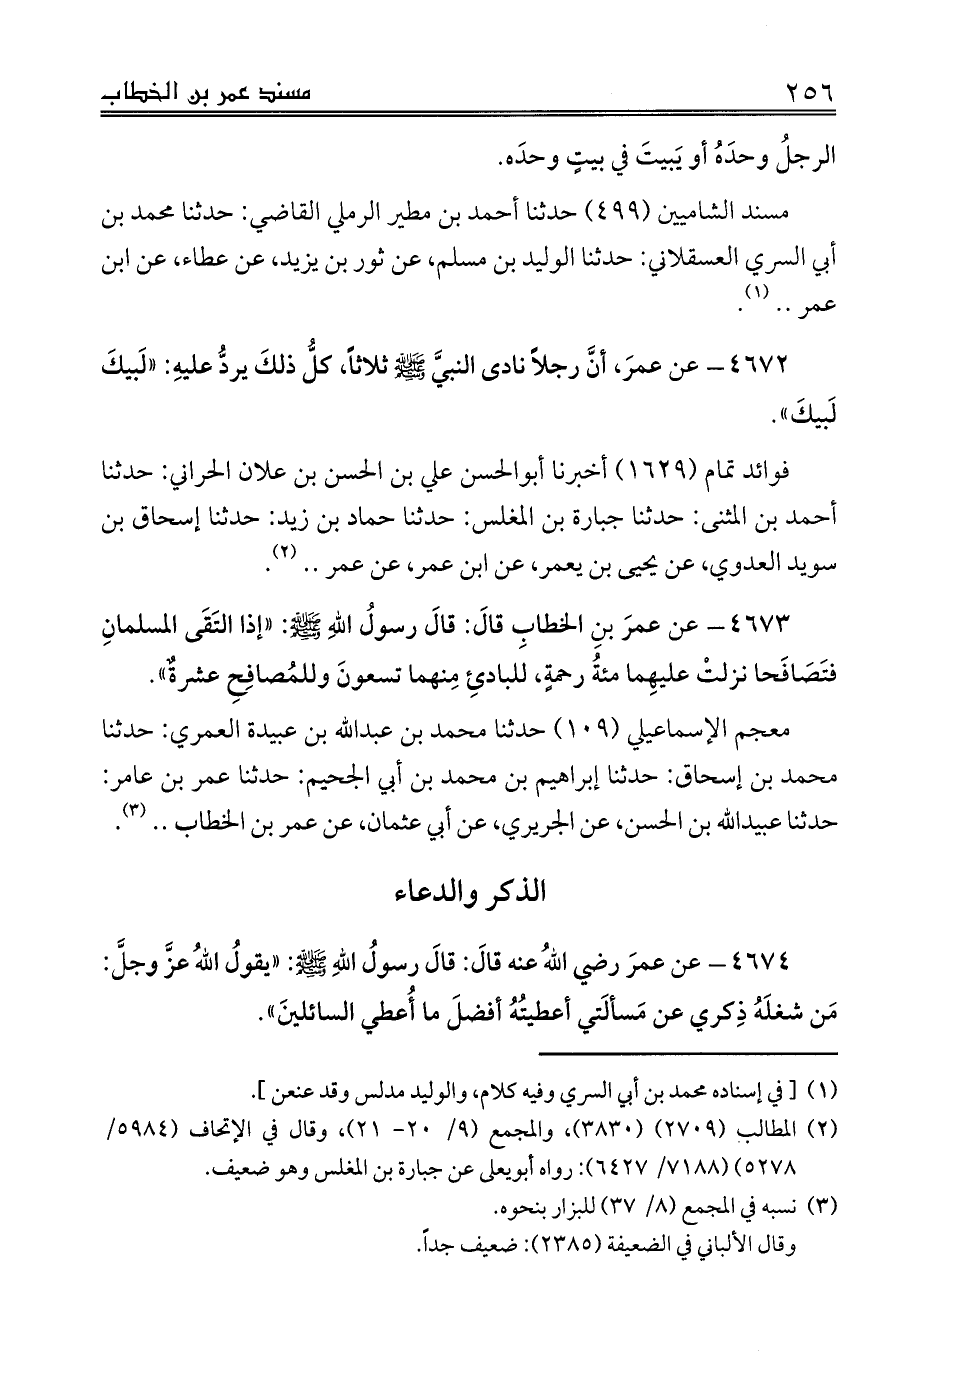 ٢٥٦ مسند عمر بن الخطاب
الرجلُ وحدَهُ أو يَبيتَ في بيتٍ وحدَه.
مسند الشاميين (٤٩٩) حدثنا أحمد بن مطير الرملي القاضي: حدثنا محمد بن
أبي السري العسقلاني: حدثنا الوليد بن مسلم، عن ثور بن يزيد، عن عطاء، عن ابن
عمر .. (١).
٤٦٧٢ – عن عمرَ، أنَّ رجلاً نادى النبيَّ ﷺ ثلاثاً، كلُّ ذلكَ يردُّ عليهِ: «لَبيكَ
لَبيكَ».
فوائد تمام (١٦٢٩) أخبرنا أبوالحسن علي بن الحسن بن علان الحراني: حدثنا
أحمد بن المثنى: حدثنا جبارة بن المغلس: حدثنا حماد بن زيد: حدثنا إسحاق بن
سويد العدوي، عن يحيى بن يعمر، عن ابن عمر، عن عمر .. (٢).
٤٦٧٣ – عن عمرَ بنِ الخطابِ قالَ: قالَ رسولُ اللهِ ﷺ: «إذا التَقَى المسلمانِ
فتَصَافَحا نزلتْ عليهِما مئةُ رحمةٍ، للبادئِ مِنهما تسعونَ وللمُصافِحِ عشرةٌ».
معجم الإسماعيلي (١٠٩) حدثنا محمد بن عبدالله بن عبيدة العمري: حدثنا
محمد بن إسحاق: حدثنا إبراهيم بن محمد بن أبي الجحيم: حدثنا عمر بن عامر:
حدثنا عبيدالله بن الحسن، عن الجريري، عن أبي عثمان، عن عمر بن الخطاب .. (٣).
الذكر والدعاء
٤٦٧٤ – عن عمرَ رضي اللهُ عنه قالَ: قالَ رسولُ اللهِ ﷺ: «يقولُ اللهُ عزَّ وجلَّ:
مَن شغلَهُ ذِكري عن مَسألَتي أعطيتُهُ أفضلَ ما أُعطي السائلينَ».
(١) [في إسناده محمد بن أبي السري وفيه كلام، والوليد مدلس وقد عنعن].
(٢) المطالب (٢٧٠٩) (٣٨٣٠)، والمجمع (٩/ ٢٠- ٢١)، وقال في الإتحاف (٥٩٨٤/
٥٢٧٨) (٧١٨٨/ ٦٤٢٧): رواه أبويعلى عن جبارة بن المغلس وهو ضعيف.
(٣) نسبه في المجمع (٨/ ٣٧) للبزار بنحوه.
وقال الألباني في الضعيفة (٢٣٨٥): ضعيف جداً.